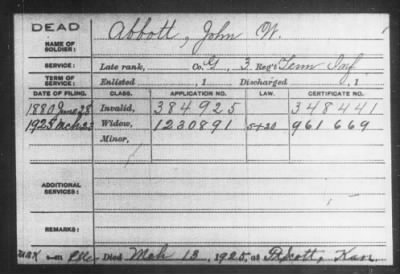 DEAD
NAME OF SOLDIER: Abbott, John W.
SERVICE: Late rank, Co. G, 3 Reg't Tenn Inf
TERM OF SERVICE: Enlisted , 1 Discharged , 1
DATE OF FILING. CLASS. APPLICATION NO. LAW. CERTIFICATE NO.
1880 June 28 Invalid, 384925 348441
1925 Mch 23 Widow, 1230891 5-1-20 961669
Minor,
ADDITIONAL SERVICES:
REMARKS:
Died Mch 13, 1925, at Ft Scott, Kan